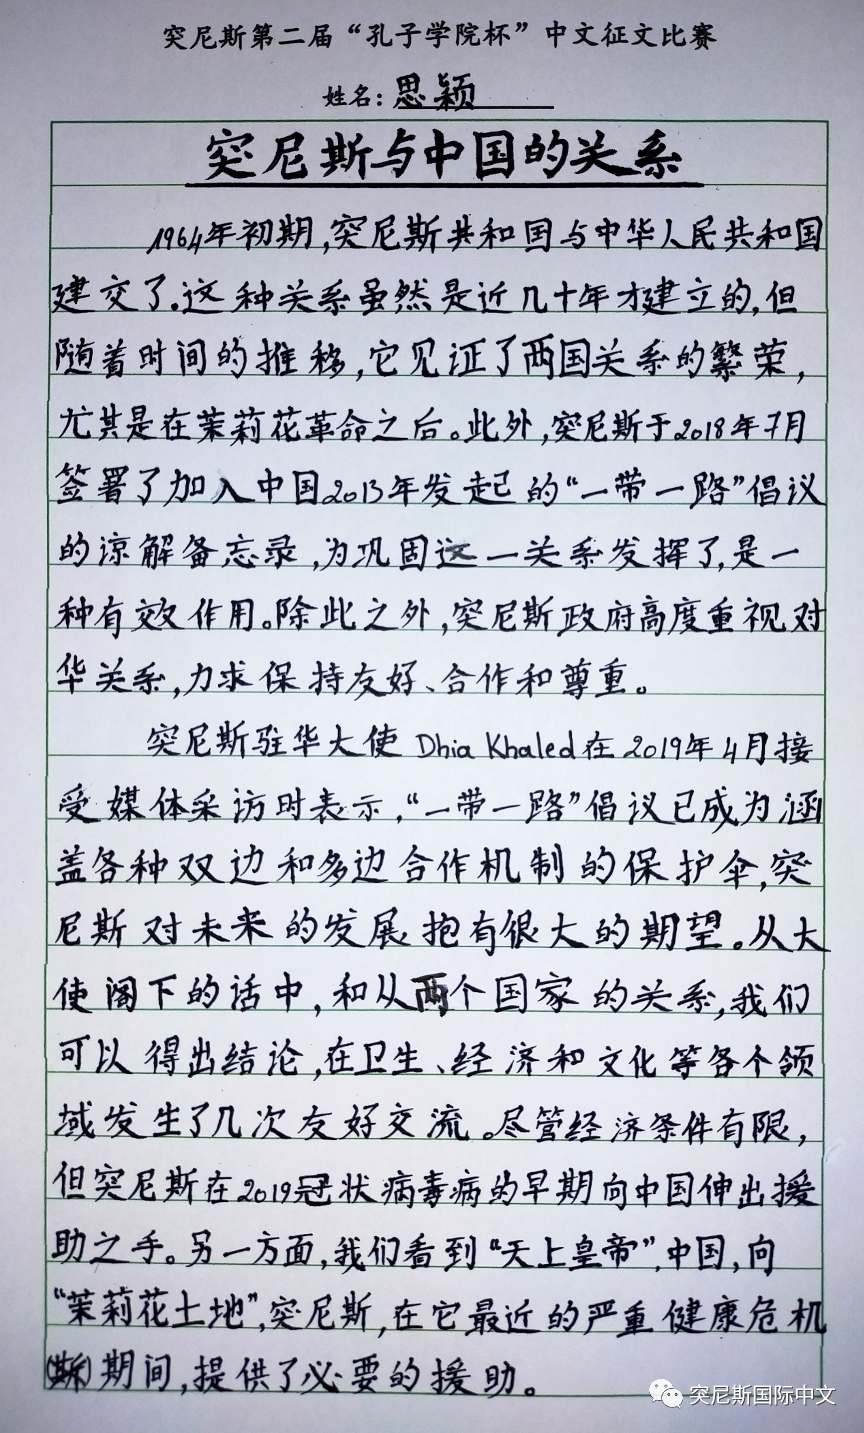 突尼斯第二届“孔子学院杯”中文征文比赛
姓名：思颖
突尼斯与中国的关系
1964年初期,突尼斯共和国与中华人民共和国
建交了.这种关系虽然是近几十年才建立的,但
随着时间的推移,它见证了两国关系的繁荣,
尤其是在茉莉花革命之后。此外,突尼斯于2018年7月
签署了加入中国2013年发起的“一带一路”倡议
的谅解备忘录,为巩固这一关系发挥了,是一
种有效作用。除此之外,突尼斯政府高度重视对
华关系,力求保持友好、合作和尊重。
突尼斯驻华大使 Dhia Khaled在2019年4月接
受媒体采访时表示,“一带一路”倡议已成为涵
盖各种双边和多边合作机制的保护伞,突
尼斯对未来的发展抱有很大的期望。从大
使阁下的话中,和从两个国家的关系,我们
可以得出结论,在卫生、经济和文化等各个领
域发生了几次友好交流。尽管经济条件有限,
但突尼斯在2019冠状病毒病的早期向中国伸出援
助之手。另一方面,我们看到“天上皇帝”,中国,向
“茉莉花土地”,突尼斯,在它最近的严重健康危机
(斯)期间,提供了必要的援助。
突尼斯国际中文